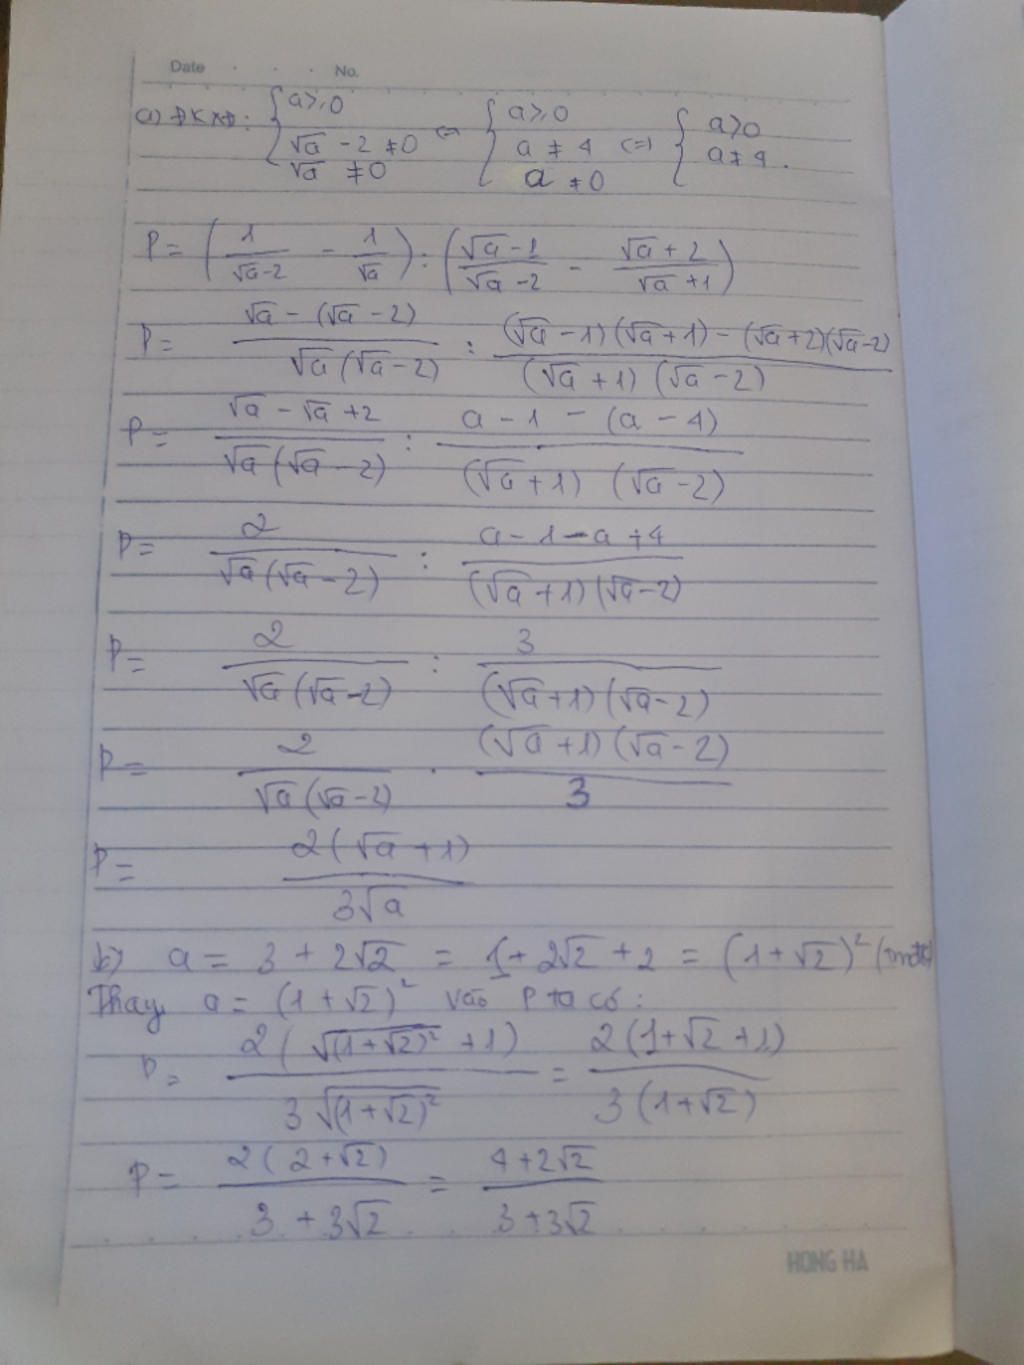 Date . . . No.
a) ĐKXĐ: { a ≥ 0 ; √a - 2 ≠ 0 ; √a ≠ 0 <=> { a ≥ 0 ; a ≠ 4 ; a ≠ 0 <=> { a > 0 ; a ≠ 4.
P = (1/(√a-2) - 1/√a) : ((√a-1)/(√a-2) - (√a+2)/(√a+1))
P = (√a - (√a-2))/(√a(√a-2)) : ((√a-1)(√a+1) - (√a+2)(√a-2))/((√a+1)(√a-2))
P = (√a - √a + 2)/(√a(√a-2)) : (a - 1 - (a - 4))/((√a+1)(√a-2))
P = 2/(√a(√a-2)) : (a - 1 - a + 4)/((√a+1)(√a-2))
P = 2/(√a(√a-2)) : 3/((√a+1)(√a-2))
P = 2/(√a(√a-2)) . ((√a+1)(√a-2))/3
P = 2(√a+1)/(3√a)
b) a = 3 + 2√2 = 1 + 2√2 + 2 = (1+√2)² (tmđk)
Thay a = (1+√2)² vào P ta có:
P = 2(√(1+√2)² + 1)/(3√(1+√2)²) = 2(1+√2+1)/(3(1+√2))
P = 2(2+√2)/(3+3√2) = (4+2√2)/(3+3√2)
HONG HA